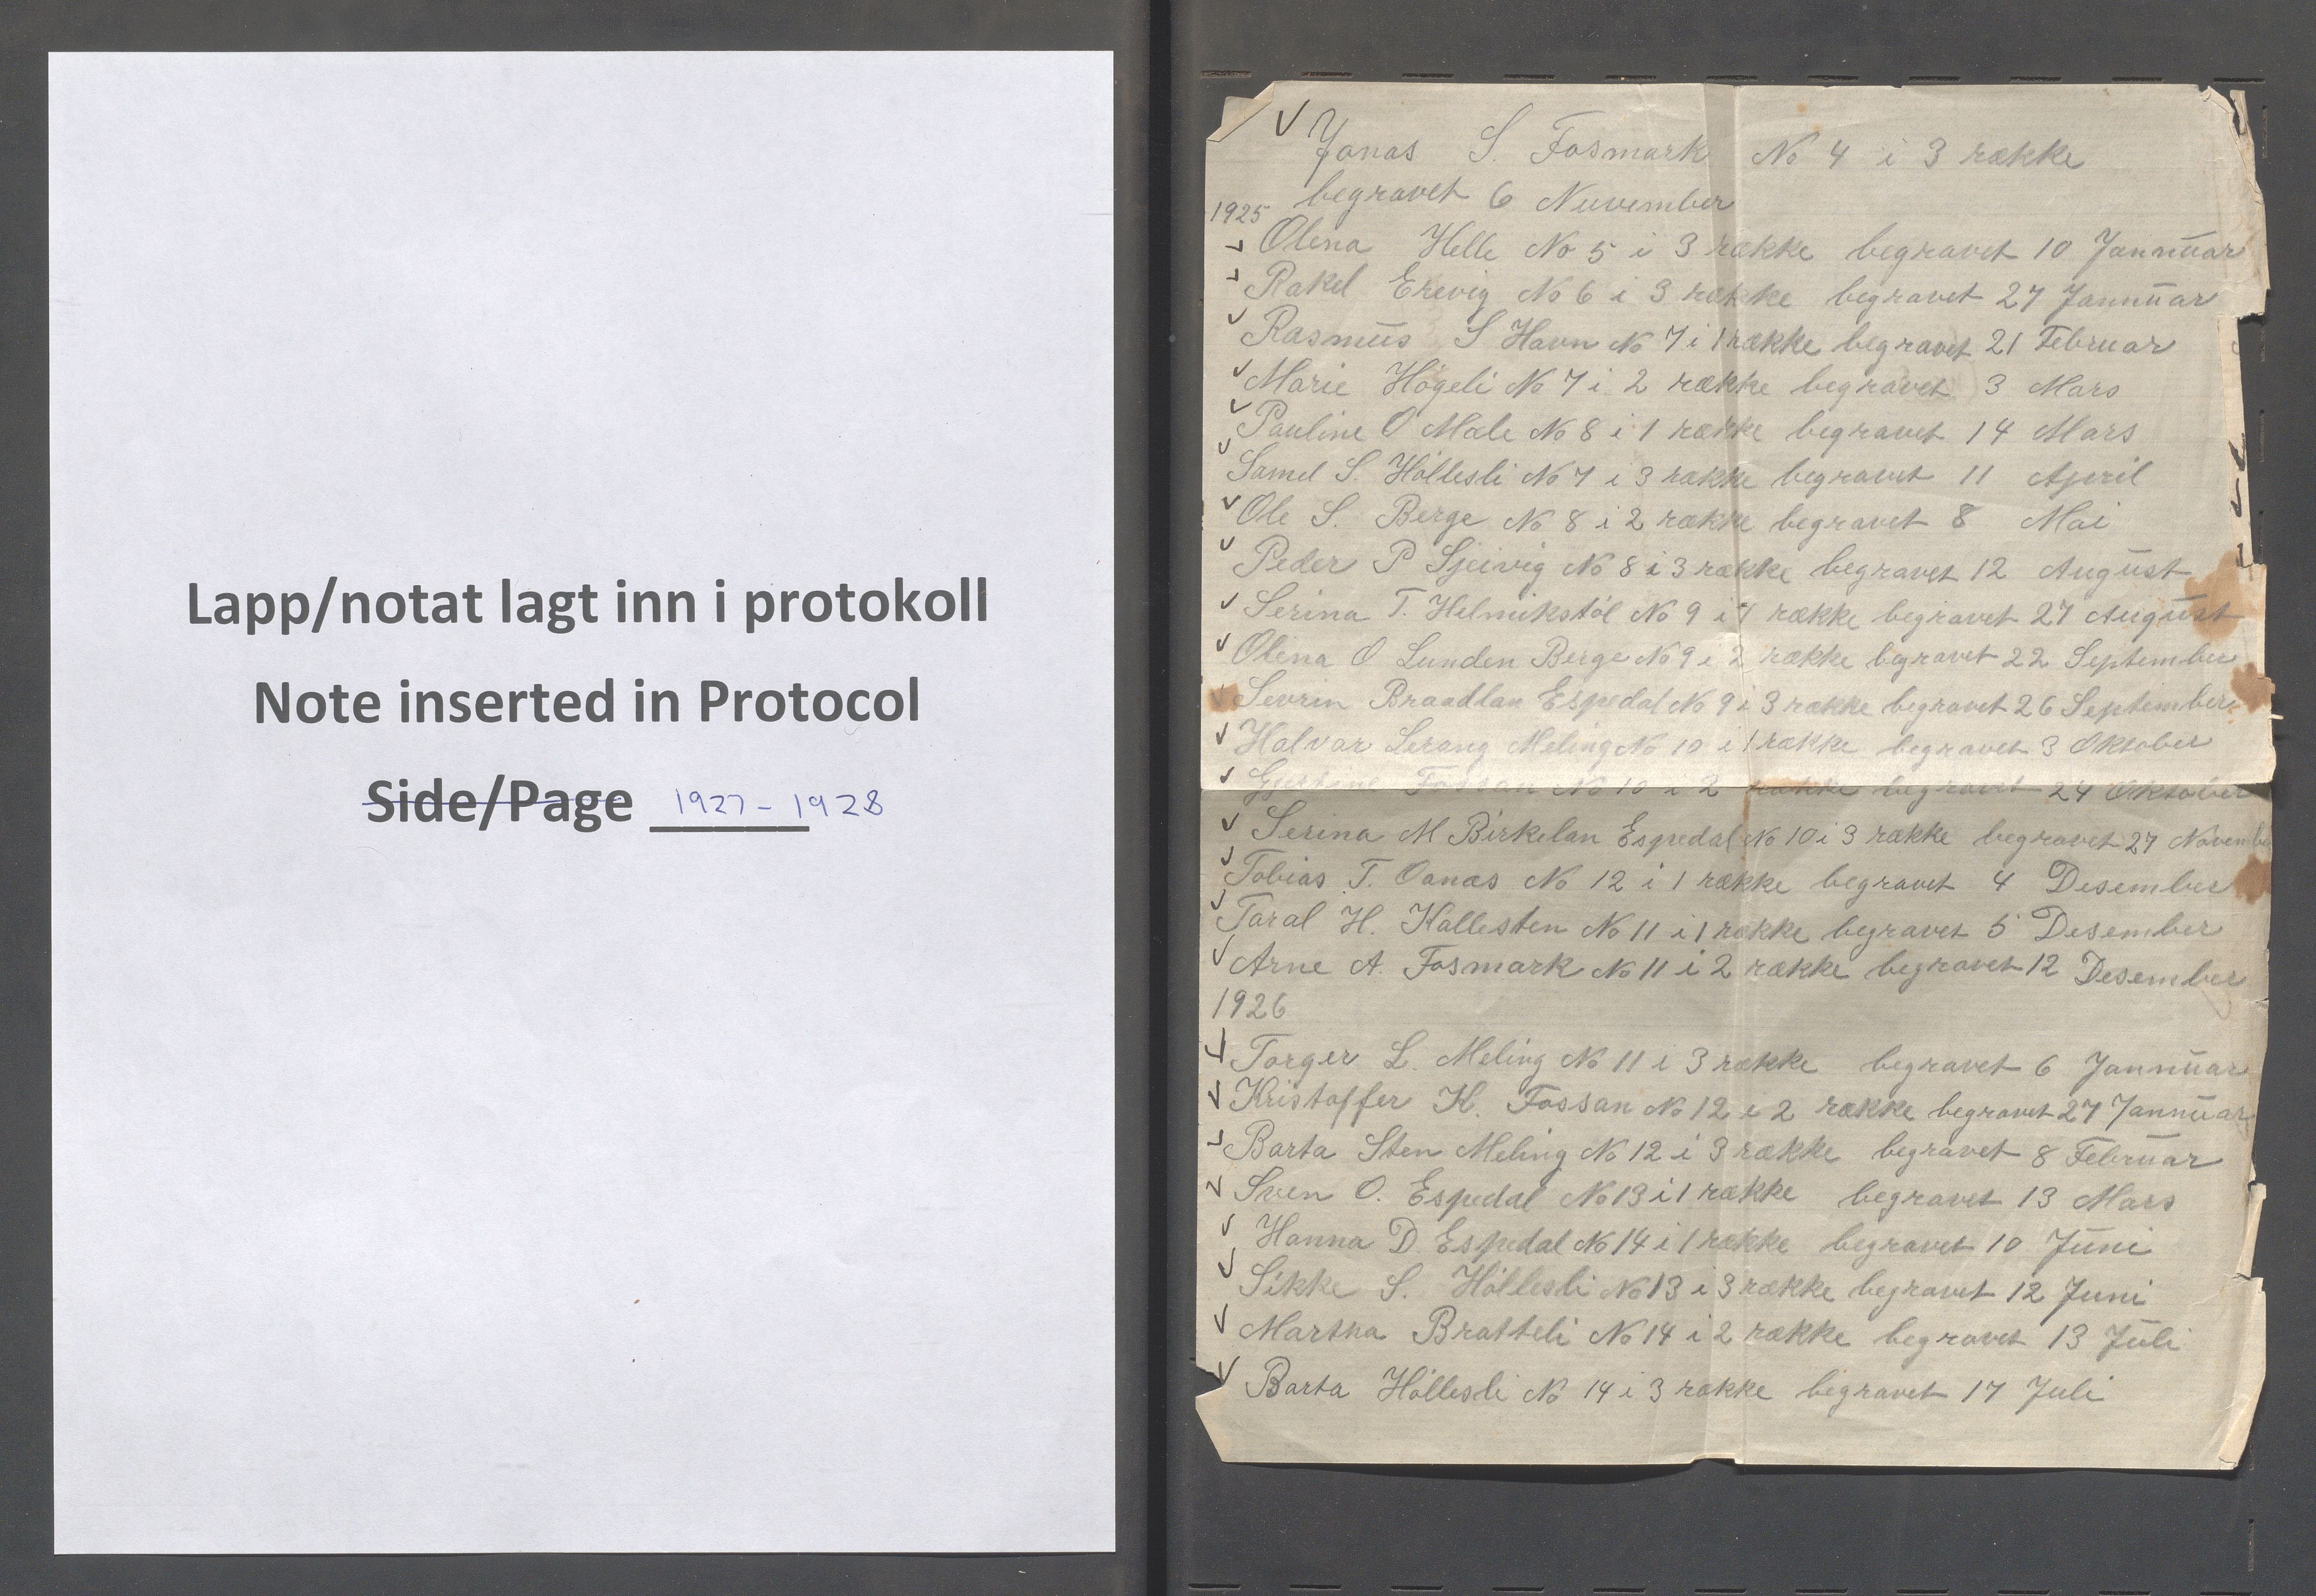 Lapp/notat lagt inn i protokoll
Note inserted in Protocol
Side/Page 1927 - 1928
Jonas S. Fosmark No 4 i 3 række
begravet 6 Nuvember
1925
Olena Helle No 5 i 3 række begravet 10 Jannuar
Rakel Erevig No 6 i 3 række begravet 27 Jannuar
Rasmus S Havn No 7 i 1 række begravet 21 Februar
Marie Högeli No 7 i 2 række begravet 3 Mars
Pauline O Mæle No 8 i 1 række begravet 14 Mars
Samel S. Höllesli No 7 i 3 række begravet 11 April
Ole S. Berge No 8 i 2 række begravet 8 Mai
Peder P Sjeivig No 8 i 3 række begravet 12 August
Serina T. Helmikstöl No 9 i 1 række begravet 27 August
Olena O Lunden Berge No 9 i 2 række begravet 22 September
Sevrin Braadlan Espedal No 9 i 3 række begravet 26 September
Halvar Lerang Meling No 10 i 1 række begravet 3 Oktober
Fossan No 10 i 2 række begravet 24 Oktober
Serina M Birkelan Espedal No 10 i 3 række begravet 27 November
Tobias T. Oanæs No 12 i 1 række begravet 4 Desember
Taral H. Kallesten No 11 i 1 række begravet 5 Desember
Arne A. Fosmark No 11 i 2 række begravet 12 Desember
1926
Torger L. Meling No 11 i 3 række begravet 6 Jannuar
Kristoffer K. Fossan No 12 i 2 række begravet 27 Jannuar
Barta Sten Meling No 12 i 3 række begravet 8 Februar
Sven O. Espedal No 13 i 1 række begravet 13 Mars
Hanna D. Espedal No 14 i 1 række begravet 10 Juni
Sikke S. Höllesli No 13 i 3 række begravet 12 Juni
Martha Bratteli No 14 i 2 række begravet 13 Juli
Barta Höllesli No 14 i 3 række begravet 17 Juli